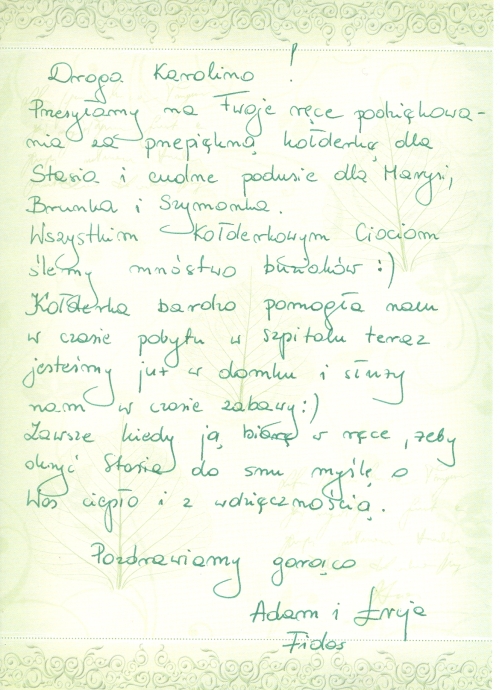 Droga Karolino!
Przesyłamy na Twoje ręce podziękowa-
nia za przepiękną kołderkę dla
Stasia i cudne podusie dla Marysi,
Brunka i Szymonka.
Wszystkim Kołderkowym Ciociom
ślemy mnóstwo buziaków :)
Kołderka bardzo pomogła nam
w czasie pobytu w szpitalu teraz
jesteśmy już w domku i służy
nam w czasie zabawy :)
Zawsze kiedy ją biorę w ręce, żeby
okryć Stasia do snu myślę o
Was ciepło i z wdzięcznością.
Pozdrawiamy gorąco
Adam i
Fidos